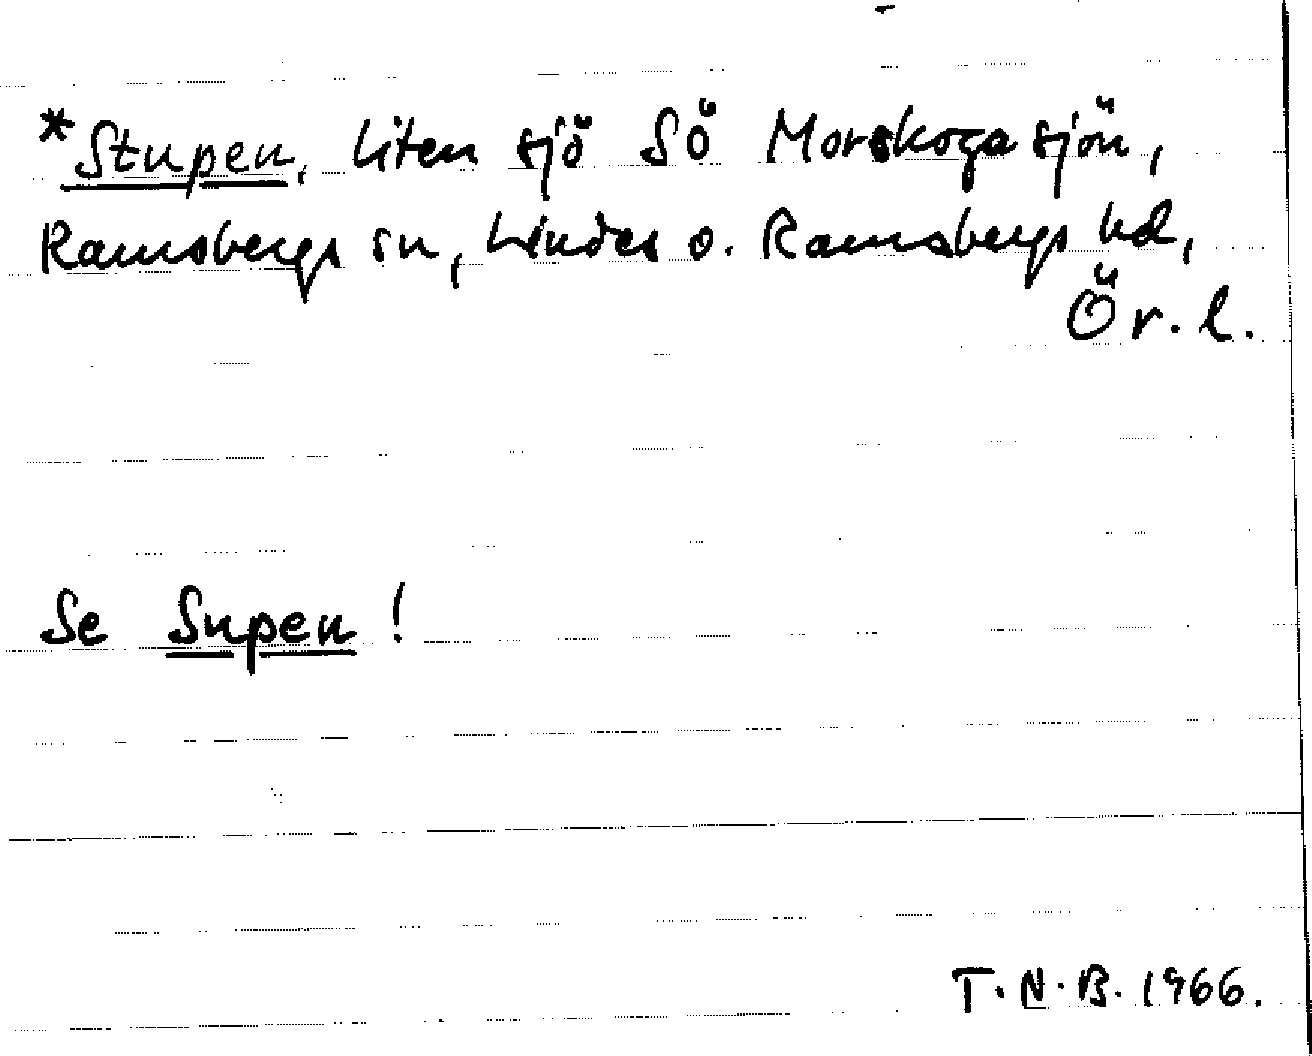 *Stupen, liten sjö SÖ Morskogasjön,
Ramsbergs sn, Lindes o. Ramsbergs hd,
Ör. l.
Se Supen!
T.N.B. 1966.